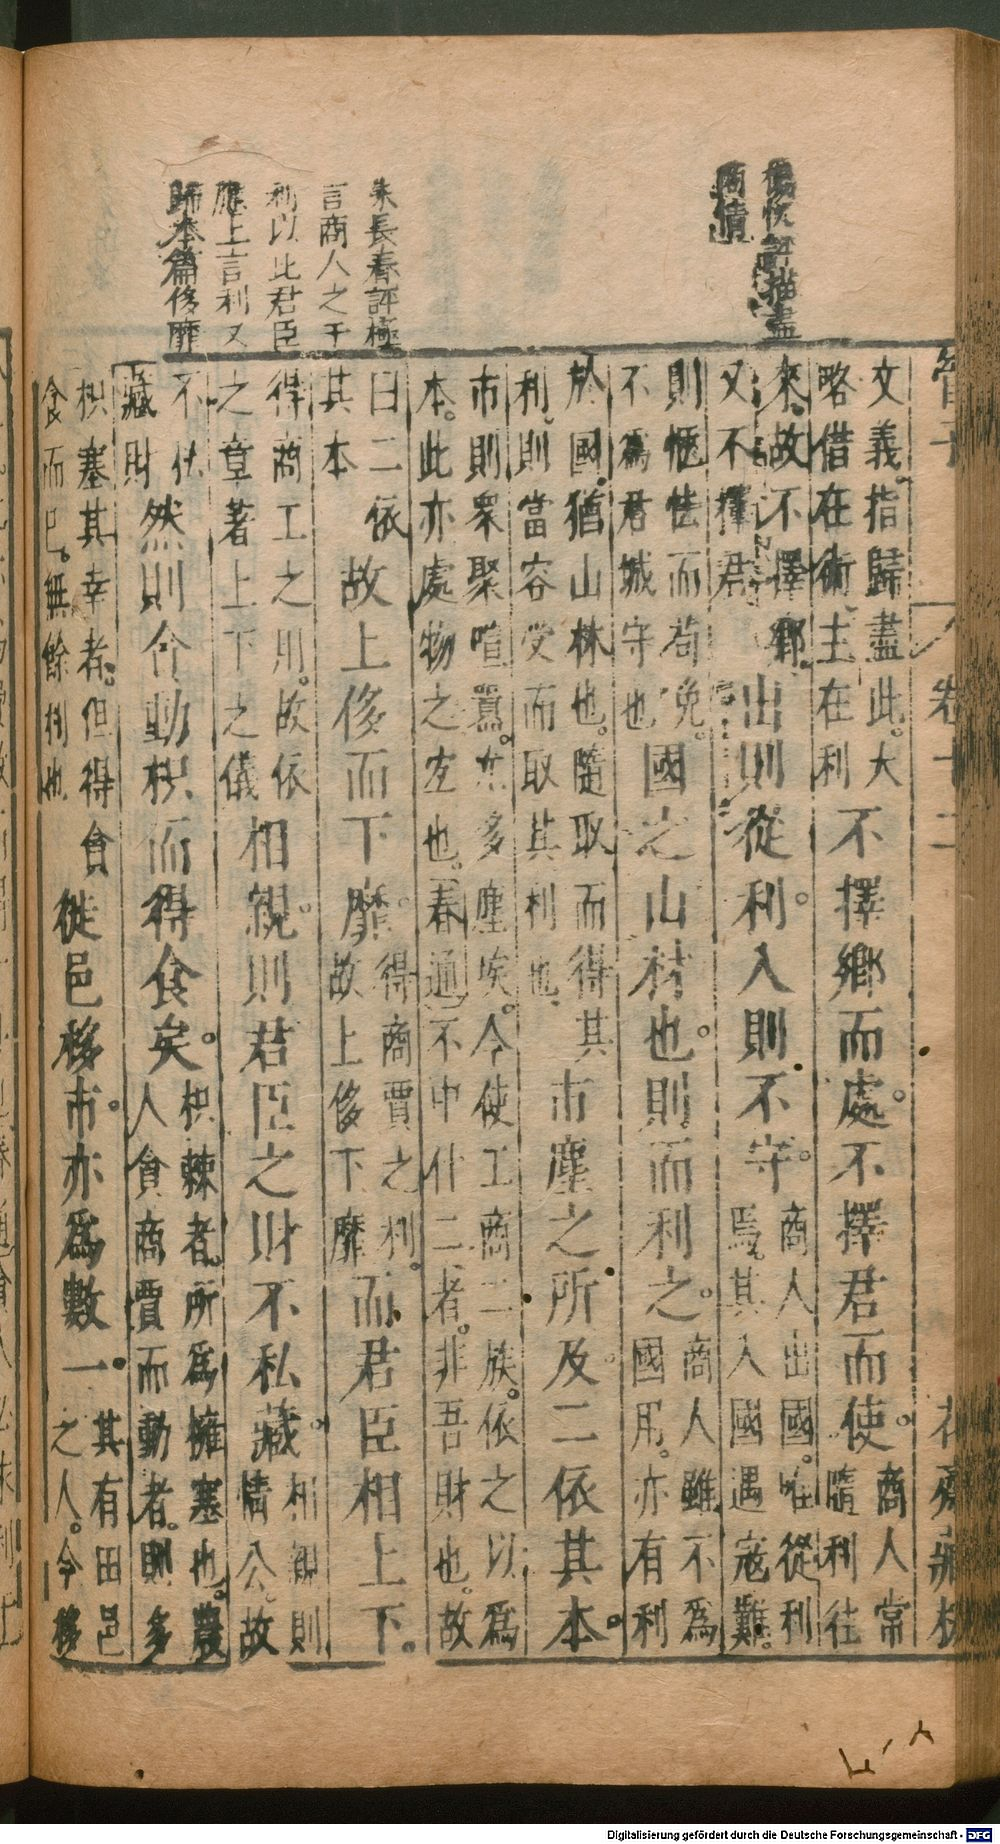 管子
卷十二
花齋藏板
評描盡
商情
朱長春評極
言商人之于
利以此君臣
應上言利又
歸本篇侈靡
文義指歸盡此大
略借在術主在利
不擇鄉而處。不擇君而使。
商人常
隨利往
來。故不擇鄉
又不擇君
出則從利。入則不守。
商人出國。唯從利
焉。其入國遇寇難。
則愜怯而苟免。
不爲君城守也
國之山林也。則而利之。
商人雖不爲
國用。亦有利
於國。猶山林也。隨取而得其
利。則當容受而取其利也
市塵之所及。二依其本。
市則衆聚喧囂。尢多塵埃。今使工商二族。依之以爲
本。此亦處物之宜也。春通不中什二者。非吾財也。故
曰二依
其本
故上侈而下靡。
得商賈之利。
故上侈下靡
而君臣相上下。
得商工之則。故依
之章著上下之儀
相親。則君臣之財不私藏。
相親則
情公。故
不
藏財
然則令動枳而得食矣。
枳棘者。所爲擁塞也。農
人貪商賈而動者。則多
枳塞其幸者。但得食
食而已。無餘利也
徙邑移市亦爲數一。
其有田邑
之人。今移
Digitalisierung gefördert durch die Deutsche Forschungsgemeinschaft - DFG